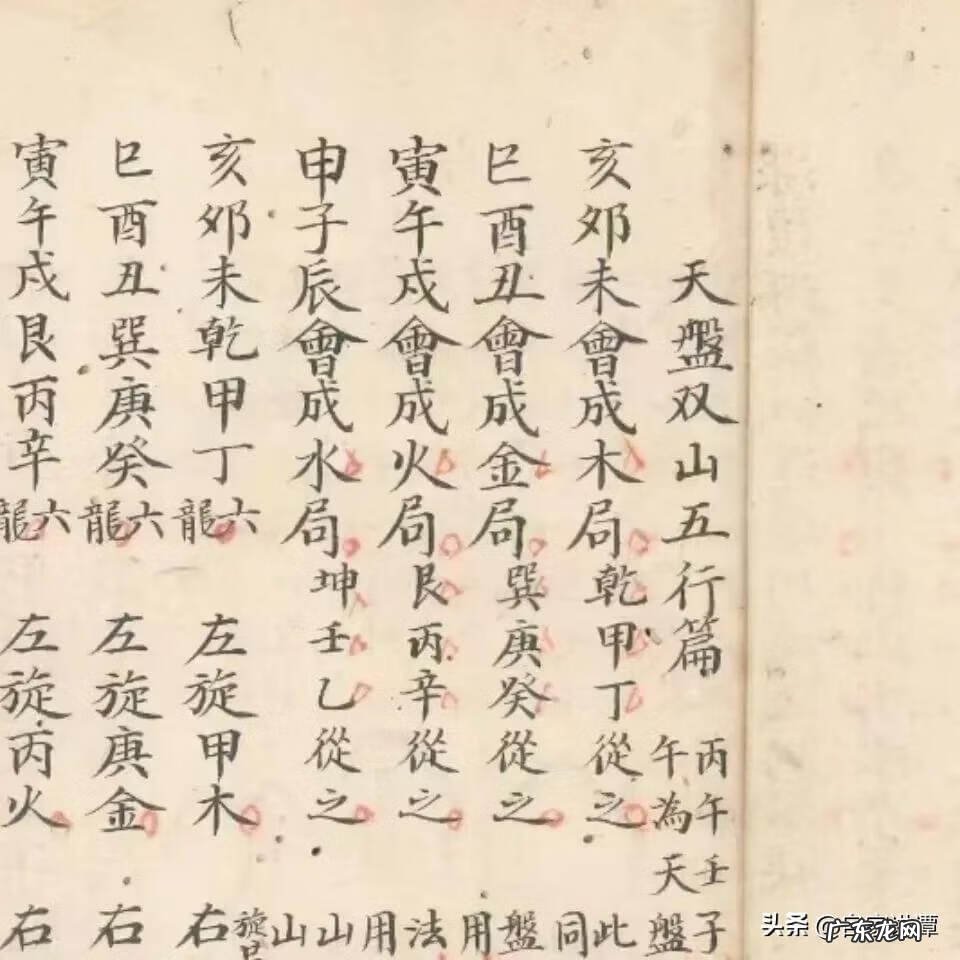 天盤双山五行篇
丙午壬子
午為天盤
亥卯未會成木局乾甲丁從之
此
同
巳酉丑會成金局巽庚癸從之
盤
用
寅午戌會成火局艮丙辛從之
法
用
申子辰會成水局坤壬乙從之
山
山
亥卯未乾甲丁
六
龍
左旋甲木
旋
右
巳酉丑巽庚癸
六
龍
左旋庚金
右
寅午戌艮丙辛
六
龍
左旋丙火
右
头条
广东龙网